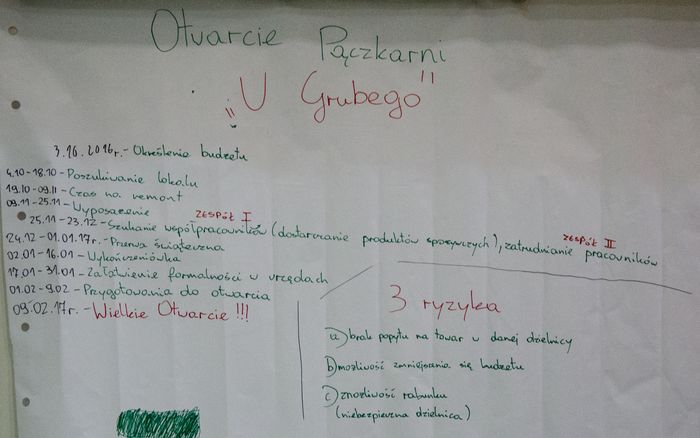 Otwarcie Pączkarni
"U Grubego"
3.10.2016r. - Określenie budżetu
4.10-18.10 - Poszukiwanie lokalu
19.10-09.11 - Czas na remont
09.11-25.11 - Wyposażenie
ZESPÓŁ I
ZESPÓŁ II
25.11-23.12 - Szukanie współpracowników (dostarczanie produktów spożywczych), zatrudnianie pracowników
24.12-01.01.17r. - Przerwa świąteczna
02.01-16.01 - Wykończeniówka
17.01-31.01 - Załatwienie formalności w urzędach
01.02-9.02 - Przygotowania do otwarcia
09.02.17r. - Wielkie Otwarcie !!!
3 ryzyka
a) brak popytu na towar w danej dzielnicy
b) możliwość zmniejszania się budżetu
c) możliwość rabunku
(niebezpieczna dzielnica)